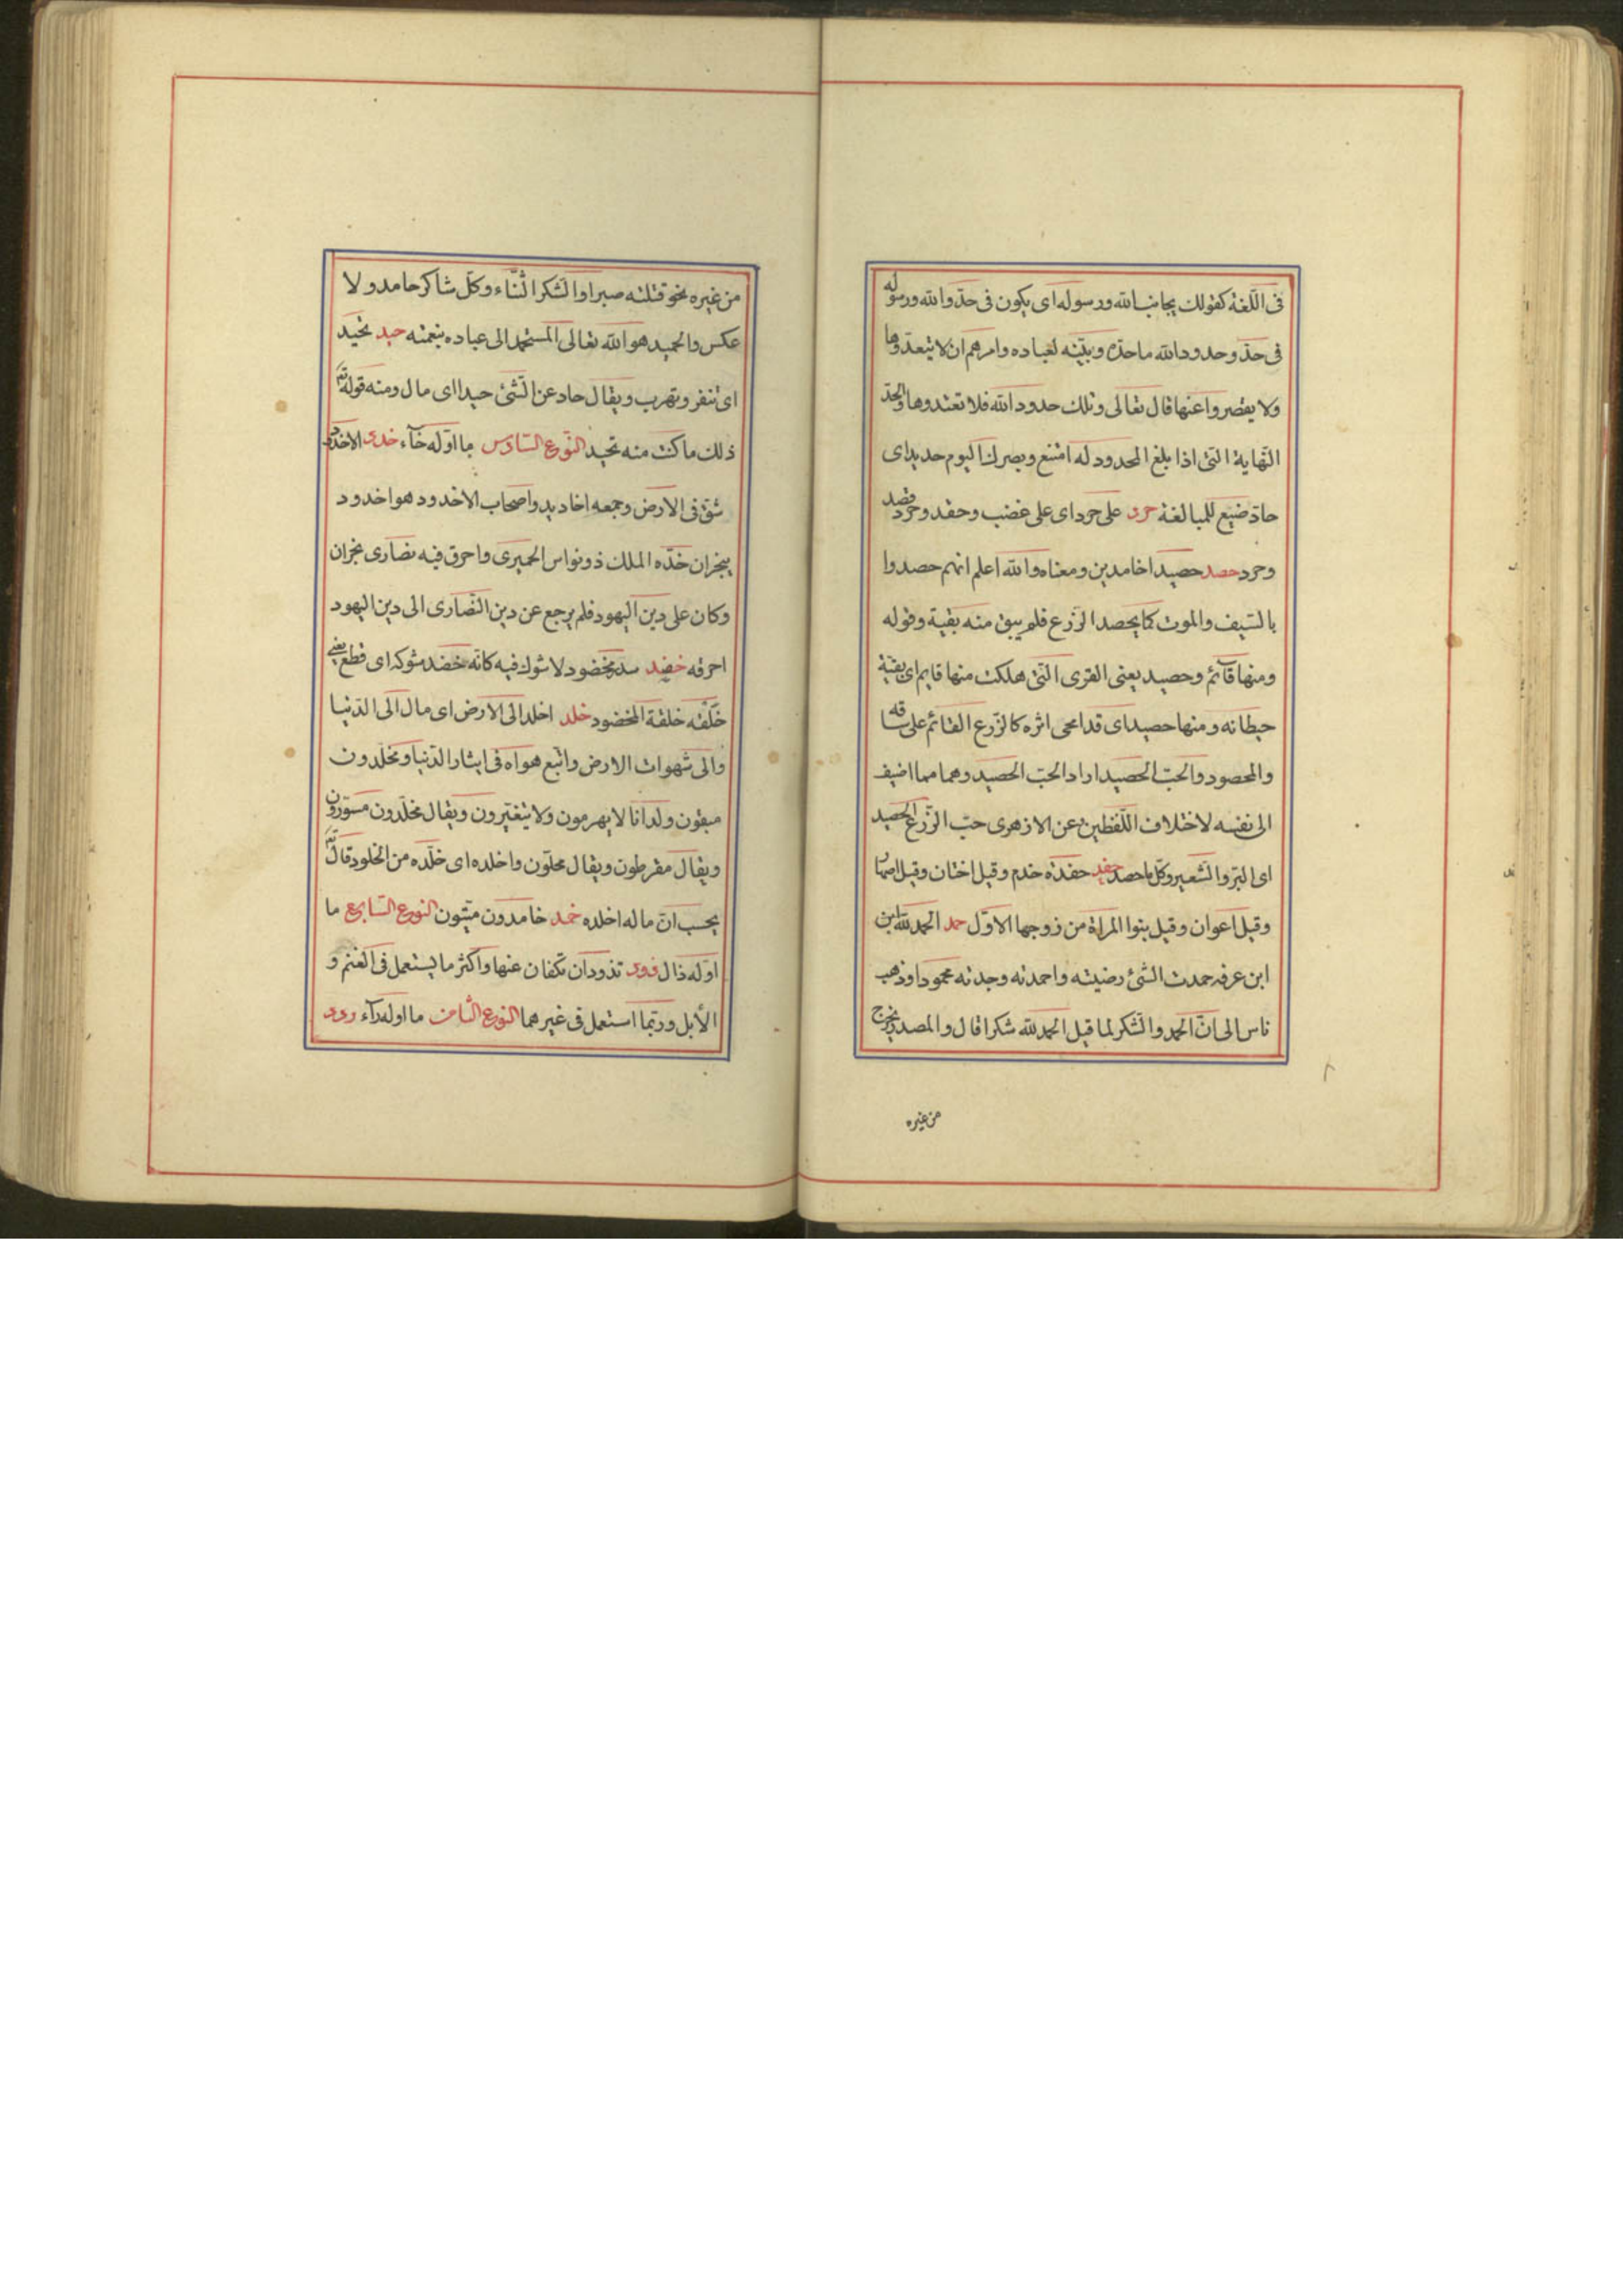 فى اللّغة كقولك يجانب الله ورسوله اى يكون فى حدّ والله ورسوله
فى حدّ وحدود الله ما حدّه وبيّنه لعباده وامرهم ان لا يتعدّوها
ولا يقصروا عنها قال تعالى وتلك حدود الله فلا تعتدوها والحدّ
النّهاية الّتى اذا بلغ المحدود له امتنع وبصرك اليوم حديد اى
حادّ صيغ للمبالغة حرد على حرد اى على غضب وحقد وحرد قصد
وحرد حصد حصيدا خامدين ومعناه والله اعلم انهم حصدوا
بالسّيف والموت كما يحصد الزّرع فلم يبق منه بقيّة وقوله
ومنها قآئم وحصيد يعنى القرى الّتى هلكت منها قايم اى بقيّة
حيطانه ومنها حصيد اى قد امحى اثره كالزّرع القائم على ساقه
والمحصود والحبّ الحصيد اراد الحبّ الحصيد وهما مما اضيف
الى نفسه لاختلاف اللّفظين عن الازهرى حبّ الزّرع الحصيد
اى البرّ والشّعير وكلّ ما حصد حفد حفدة خدم وقيل اختان وقيل اصهار
وقيل اعوان وقيل بنوا المراة من زوجها الاوّل حمد الحمد لله ابن
ابن عرفه حمدت الشّئ رضيته واحمدته وجدته محمودا وذهب
ناس الى انّ الحمد والشّكر لما قيل الحمد لله شكرا قال والمصدر يخرج
من غيره
من غيره نحو قتلته صبرا والشّكر الثّناء وكلّ شاكر حامد ولا
عكس والحميد هو الله تعالى المستحمد الى عباده بنعمته حيد تحيد
اى تنفر وتهرب ويقال حاد عن الشّئ حيدا اى مال ومنه قوله تع
ذلك ما كنت منه تحيد النّوع السّادس ما اوّله خآء خدد الاخدود
شقّ فى الارض وجمعه اخاديد واصحاب الاخدود هو اخدود
بنجران خدّه الملك ذو نواس الحميرى واحرق فيه نصارى نجران
وكان على دين اليهود فلم يرجع عن دين النّصارى الى دين اليهود
احرقه خضد سدر مخضود لا شوك فيه كانّه خضد شوكه اى قطع يعنى
خلّفه خلقة المخضود خلد اخلد الى الارض اى مال الى الدّنيا
والى شهوات الارض واتّبع هواه فى ايثار الدّنيا ومخلّدون
مبقون ولدانا لا يهرمون ولا يتغيّرون ويقال مخلّدون مسوّرون
ويقال مقرطون ويقال محلّون واخلده اى خلّده من الخلود قال تع
يحسب انّ ماله اخلده خمد خامدون ميّتون النوع السّابع ما
اوّله ذال ذود تذودان تكفان عنها واكثر ما يستعمل فى الغنم و
الأبل وربّما استعمل فى غيرهما النوع الثّامن ما اوله رآء ردد